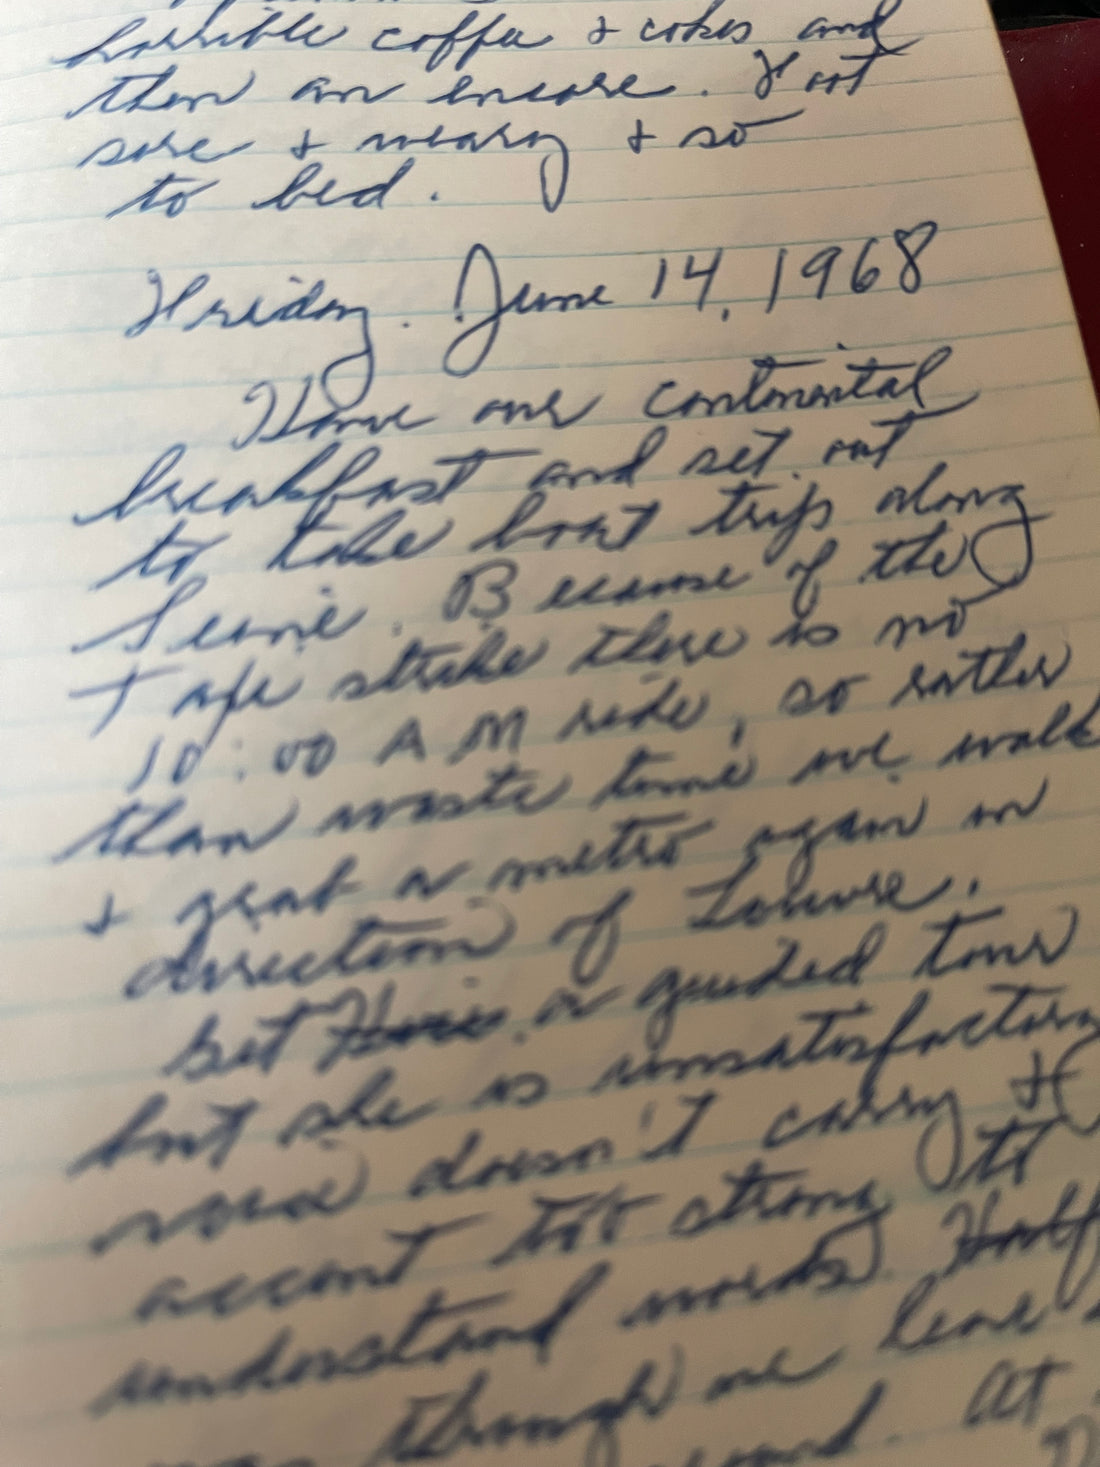 horrible coffee & cokes and
then an encore. Foot
sore & weary & so
to bed.
Friday. June 14, 1968
Have our continental
breakfast and set out
to take boat trip along
Seine. Because of the
strike there is no
10:00 AM ride, so rather
than waste time we walk
& grab a metro again in
direction of Louvre.
Get a guided tour
but she is unsatisfactory
voice doesn't carry &
accent too strong to
understand words. Half
through we leave
At